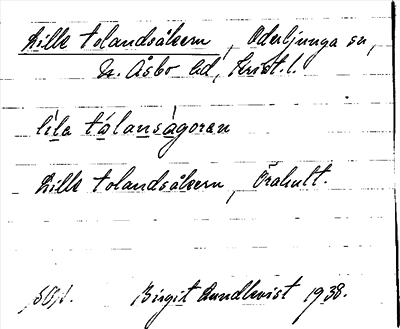 Lille tolandsåkern, Oderljunga sn,
N. Åsbo hd, Krist. l.
lila tålanságoran
Lille tolandsåkern, Frahult.
Birgit Lundkvist 1938.